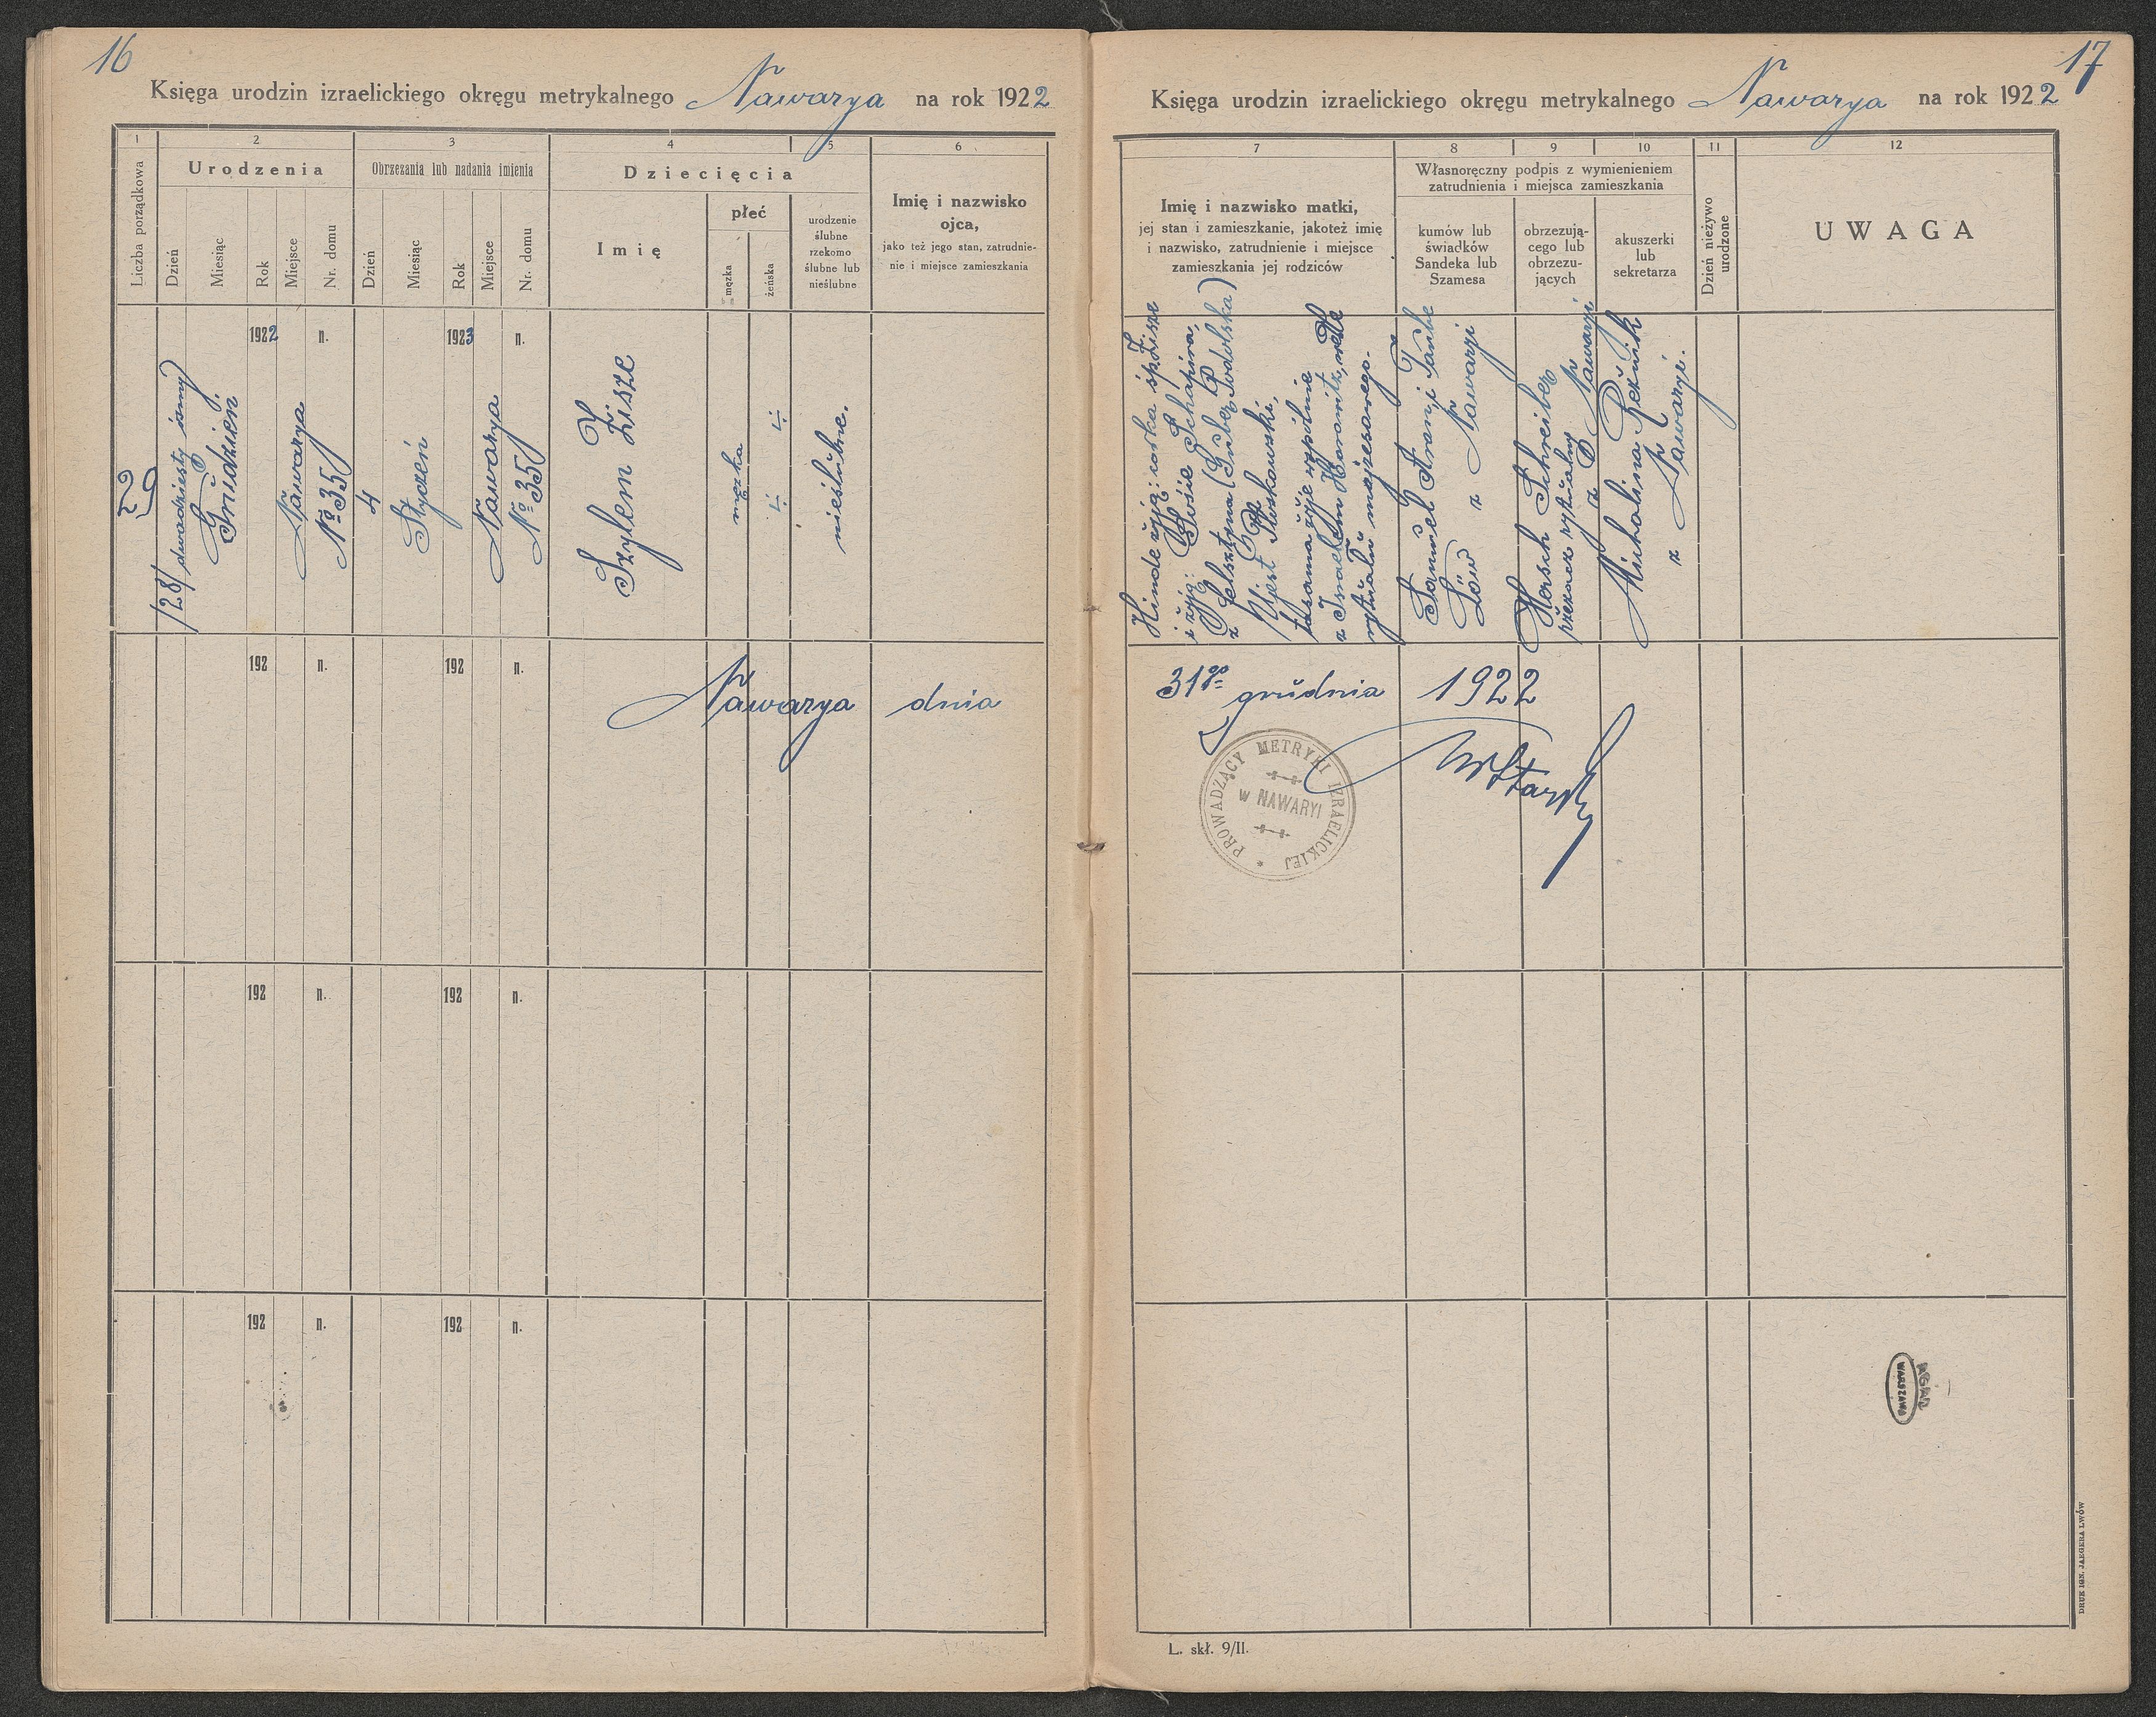 16
Księga urodzin izraelickiego okręgu metrykalnego Nawarya na rok 1922
1
2
3
4
5
6
Liczba porządkowa
Urodzenia
Obrzezania lub nadania imienia
Dziecięcia
Imię i nazwisko
ojca,
jako też jego stan, zatrudnie-
nie i miejsce zamieszkania
Dzień
Miesiąc
Rok
Miejsce
Nr. domu
Dzień
Miesiąc
Rok
Miejsce
Nr. domu
Imię
płeć
męzka
żeńska
urodzenie
ślubne
rzekomo
ślubne lub
nieślubne
29
/28/ dwadziesty ósmy
Grudzień
1922
Nawarya
n.
No 35
4
Styczeń
1923
Nawarya
n.
No 35
Szylem Zisze
męzka
nieślubne.
192 n. 192 n.
Nawarya dnia
192 n. 192 n.
192 n. 192 n.
17
Księga urodzin izraelickiego okręgu metrykalnego Nawarya na rok 1922
7
8
9
10
11
12
Imię i nazwisko matki,
jej stan i zamieszkanie, jakoteż imię
i nazwisko, zatrudnienie i miejsce
zamieszkania jej rodziców
Własnoręczny podpis z wymienieniem
zatrudnienia i miejsca zamieszkania
kumów lub
świadków
Sandeka lub
Szamesa
obrzezują-
cego lub
obrzezu-
jących
akuszerki
lub
sekretarza
Dzień nieżywo
urodzone
UWAGA
Hinde córka śp. Zisze
i Schapira,
z Felsztyna (Podolska)
z Israelem Horowitz, wedle
rytuału mojżeszowego.
Samuel i Taube
Löw z Nawaryi
Hersch Schreiber
rytualny z Nawaryi
Michalina
z Nawaryi.
31go grudnia 1922
PROWADZĄCY METRYKI IZRAELICKIEJ
w NAWARYI
WARSZAWA
L. skł. 9/II.
DRUK IGN. JAEGERA LWÓW